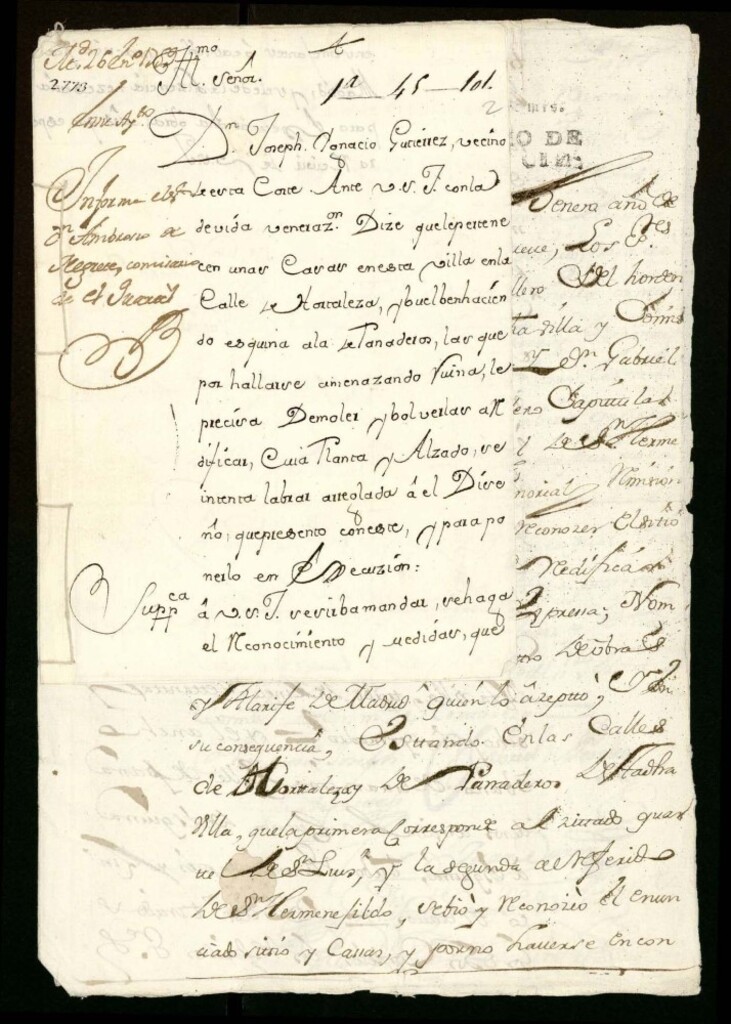 Yll.mo Señor.
1ª 45 101.
2
2.773
Dn. Joseph Ygnacio Gutierrez, vecino
de esta Corte. Ante V.S.Y. con la
devida veneraz.on Dize que le pertene
cen unas Casas en esta villa en la
Calle de Hortaleza, y buelben hacien
do esquina a la de Panaderos, las que
por hallarse amenazando Ruina, le
precisa Demoler y bolverlas a Re
dificar, Cuia Planta y Alzado, se
intenta labrar arreglada â el Dise
ño, que presento con este, y para po
nerlo en execuzión:
Supp.ca
â V.S.Y. se sirba mandar, se haga
el Reconocimiento y medidas, que
Informe el Sr.
Dn. Ambrosio de
Negrete, comisario
de el Quartel
O DE
Enero año de
Los S.res
llero Del horden
ta villa y
y Dn. Gabriel
Capitular
de Sn. Herme
Reconozer El sitio
Redificar
expressa; Nom
ro de obras
y Alarife de Madrid quien lo azeptó; y en
su consequencia, Estando En las Calles
de Hortaleza y de Panaderos De dicha
Villa, que la primera Corresponde al zittado quar
tel de Sn. Luis, y la segunda al Referido
de Sn. Hermenefildo, se vio y Reconozio el enun
ciado sitio y Casas, y por no haverse encon